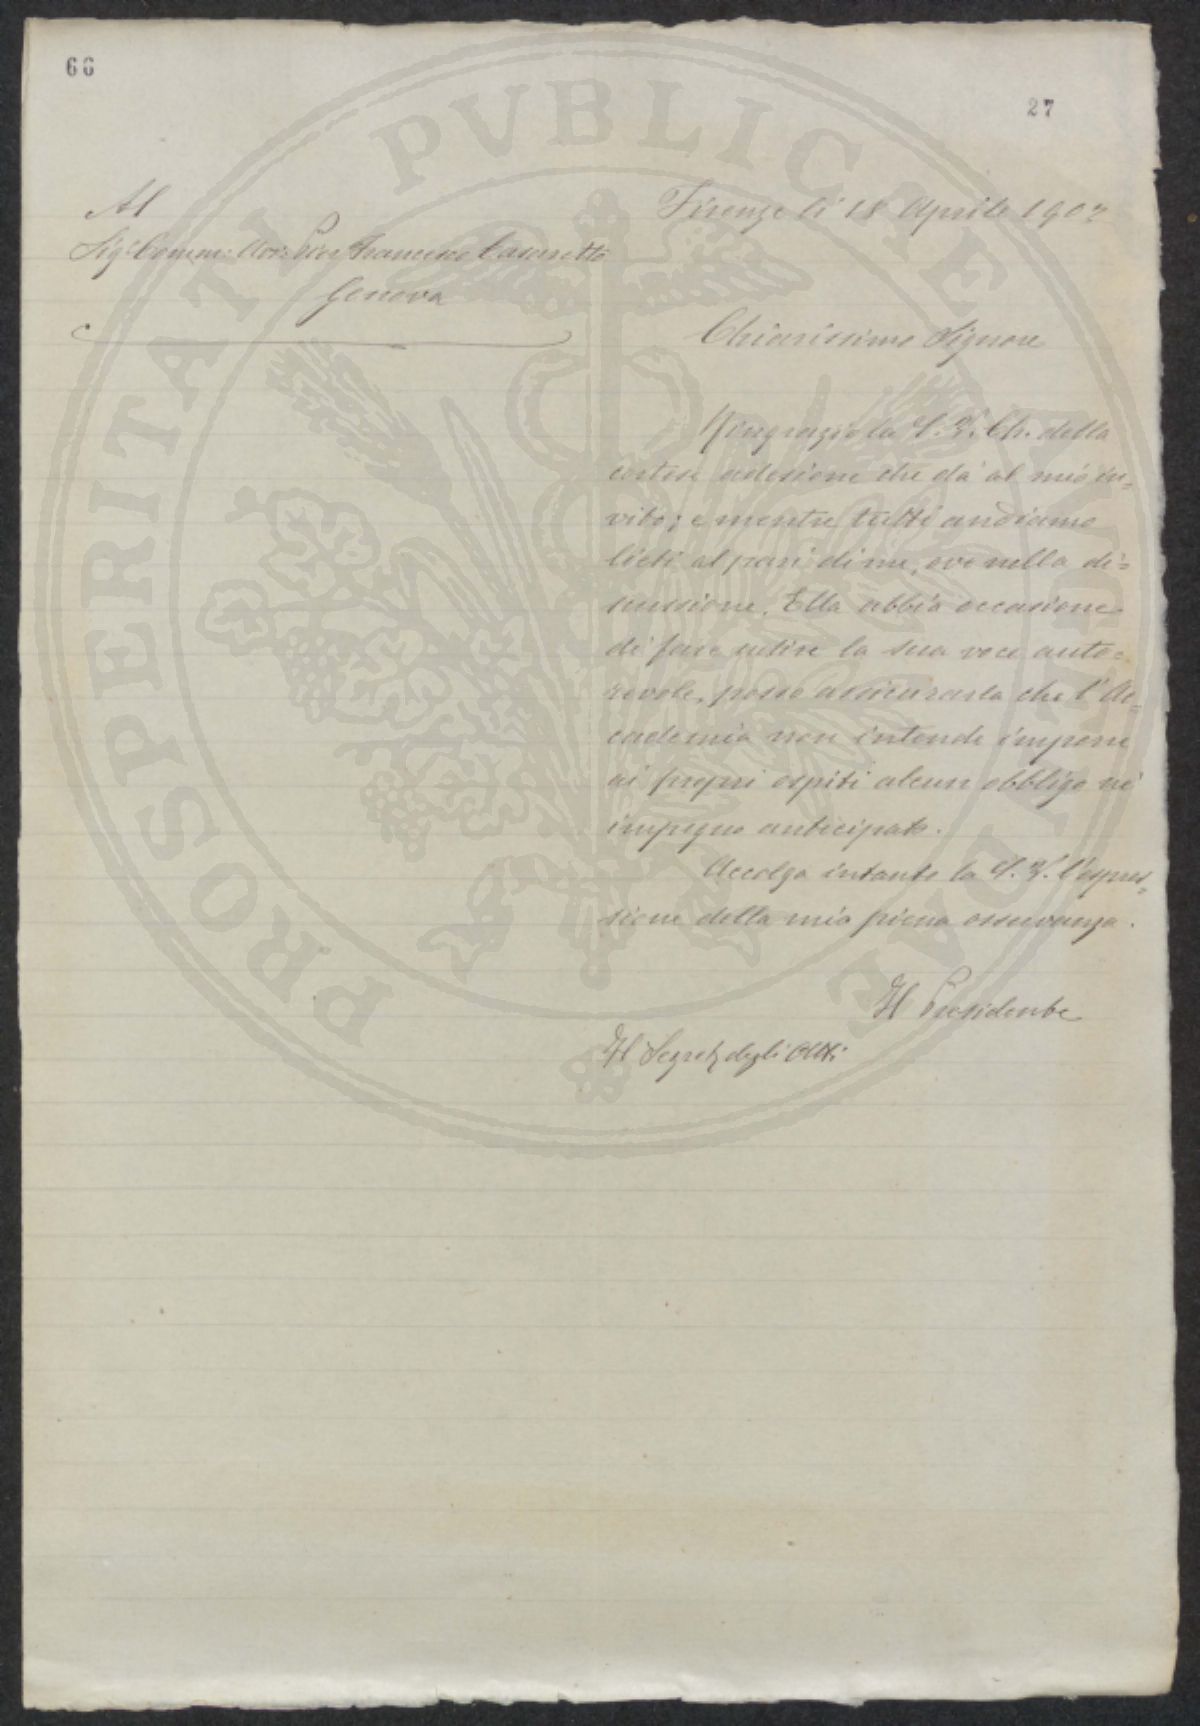 66
27
Al
Sig. Comm. Avv. Pier Francesco Casaretto
Genova
Firenze li 18 Aprile 1902
Chiarissimo Signore
Ringrazio la S. V. Ch. della
cortese adesione che dà al mio in=
vito; e mentre tutti andiamo
lieti al pari di me, ove nella di=
scussione, Ella abbia occasione
di fare sentire la sua voce auto=
revole, posso assicurarla che l'Ac=
cademia non intende imporre
ai propri ospiti alcun obbligo nè
impegno anticipato.
Accolga intanto la S. V. l'espres=
sione della mia piena osservanza.
Il Presidente
Il Segret. degli Atti
PROSPERITATI PVBLICAE AVGENDAE